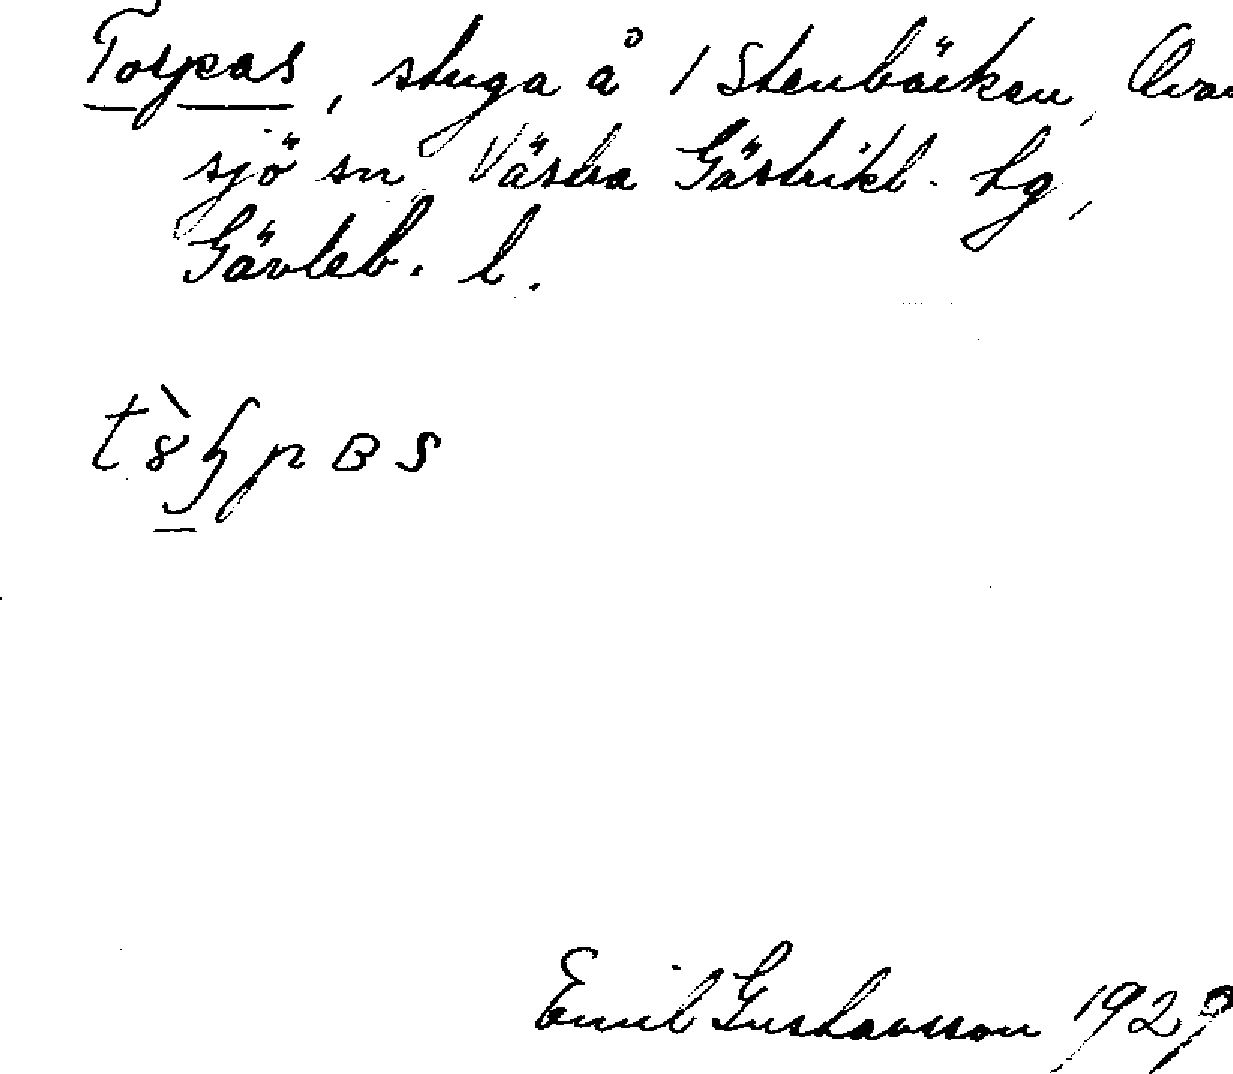 Torpas, stuga å 1 Stenbäcken, Ovan
sjö sn Västra Gästrikl. hg,
Gävleb. l.
Emil Gustavsson 1929